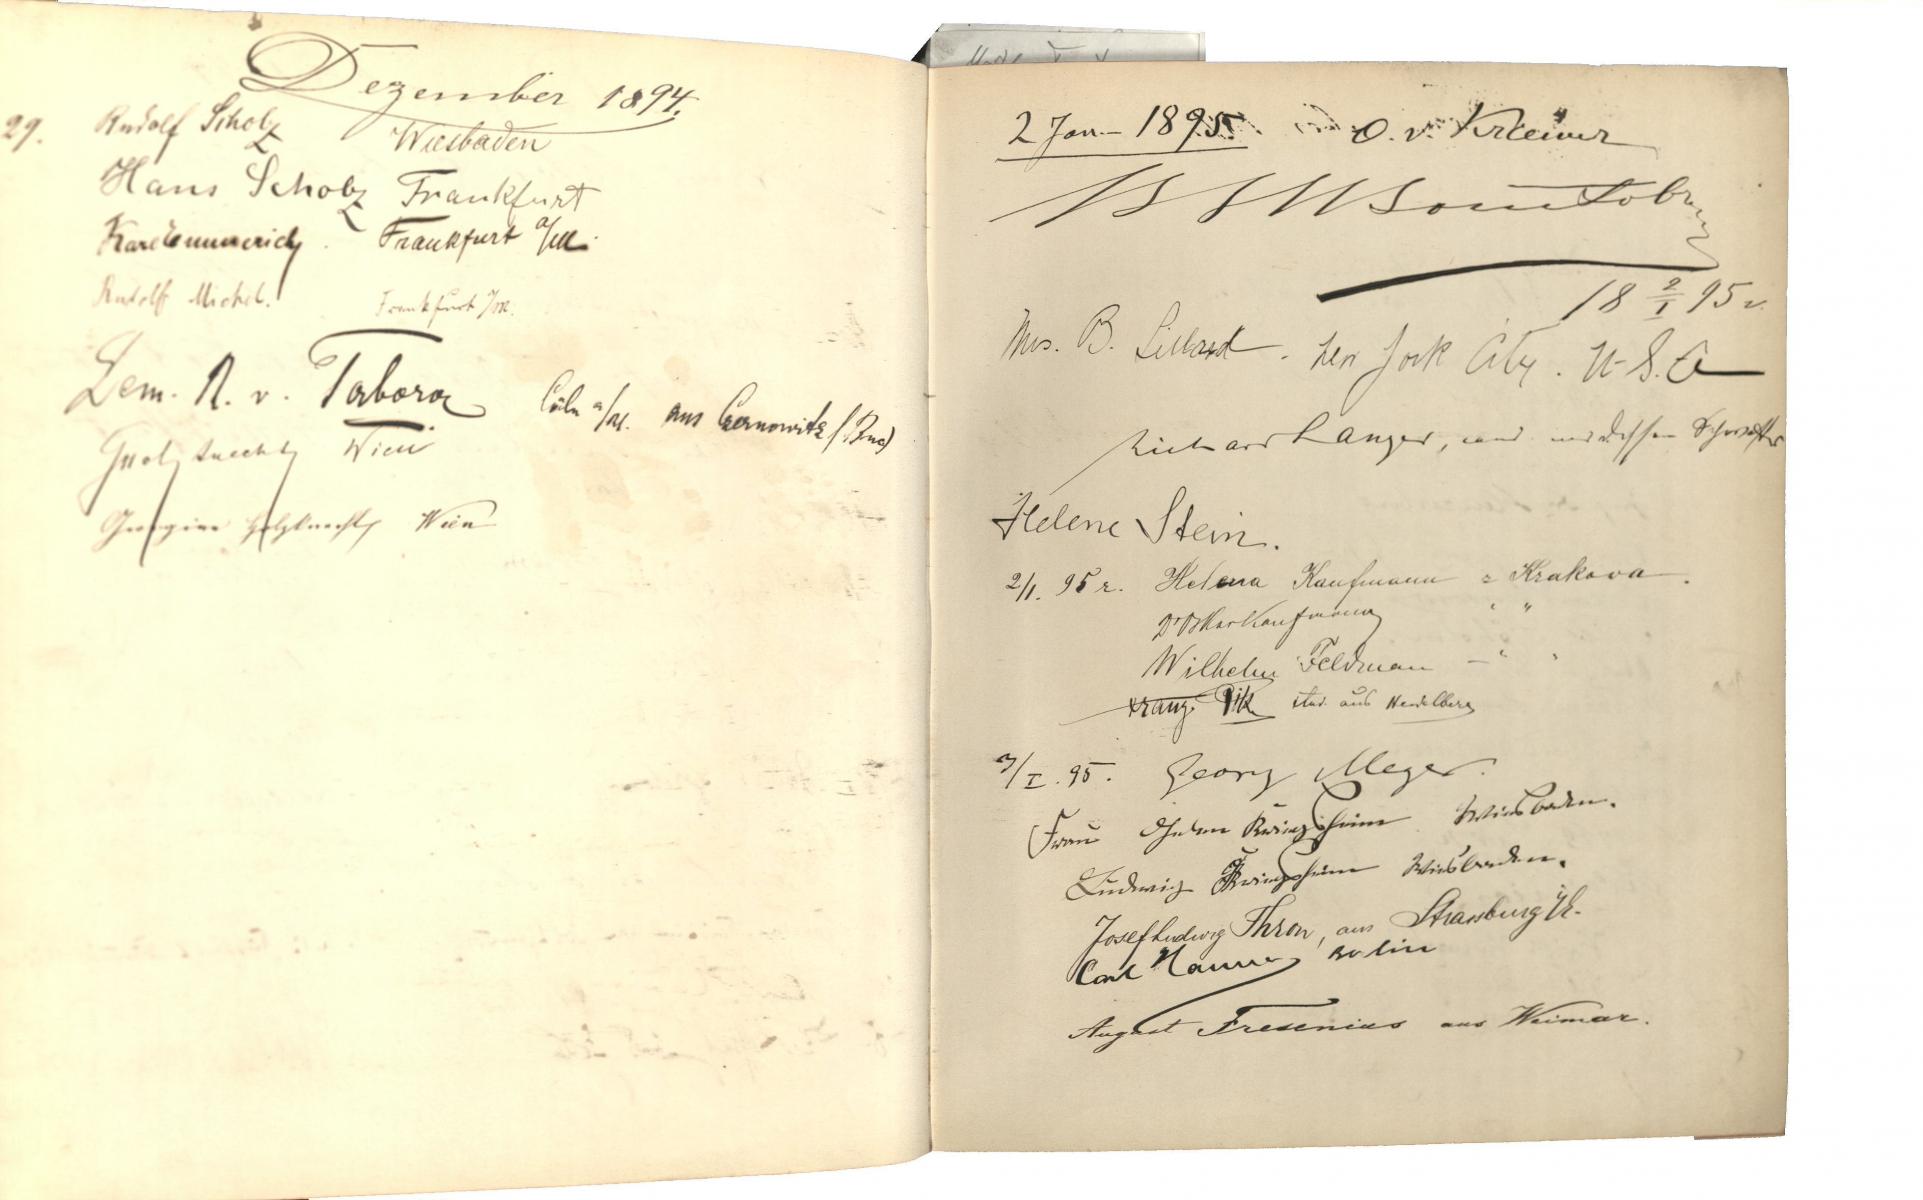 Dezember 1894.
29. Rudolf Scholz Wiesbaden
Hans Scholz Frankfurt
Karl Emmerich. Frankfurt a/M.
Rudolf Michel. Frankfurt a/M.
Dem. R. v. Tabora Cöln a/Rh. aus Czernowitz (Buc)
Holzknecht Wien
Georgine Holzknecht Wien
2 Jan 1895 O. v.
18 2/I 95 r.
Mrs. B. New York City. U.S.A
Richard Langer, und dessen Schwester
Helene Stein.
2/1. 95 r. Helena Kaufmann z Krakowa.
Dr Oskar Kaufmann " "
Wilhelm Feldman — " "
Franz Pik stud. aus Heidelberg
3/I. 95. Georg Meyer.
Frau Wiesbaden.
Ludwig Wiesbaden.
Josef Ludwig Thron, aus Strassburg i/E.
Carl Berlin
August Fresenius aus Weimar.